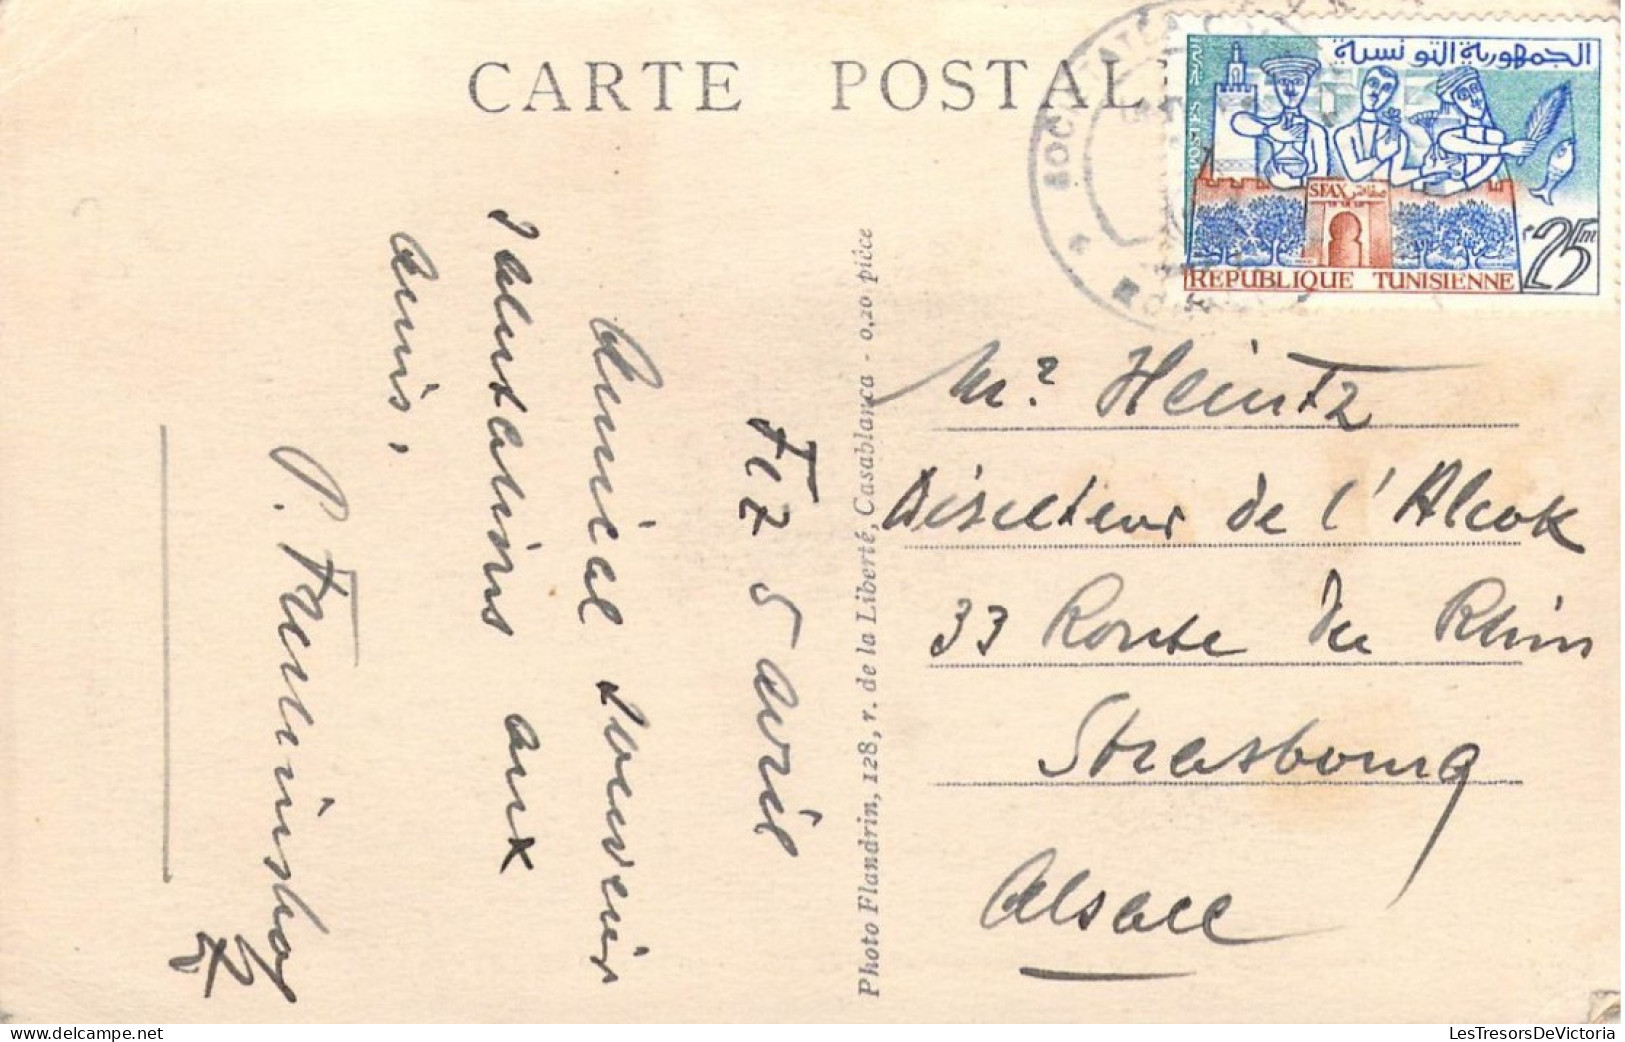 CARTE POSTALE
الجمهورية التونسية
POSTES
البريد
SFAX صفاقس
25m
REPUBLIQUE TUNISIENNE
Fez 5 avril
Amical souvenir
salutations aux
amis.
Photo Flandrin, 128, r. de la Liberté, Casablanca - 0,20 pièce
Mr Heintz
Directeur de l'Alcok
33 Route du Rhin
Strasbourg
Alsace
LesTresorsDeVictoria
delcampe.net